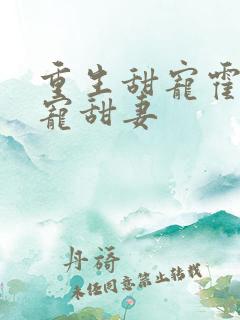 重生甜寵霍
寵甜妻
丹諾
未经同意禁止转载